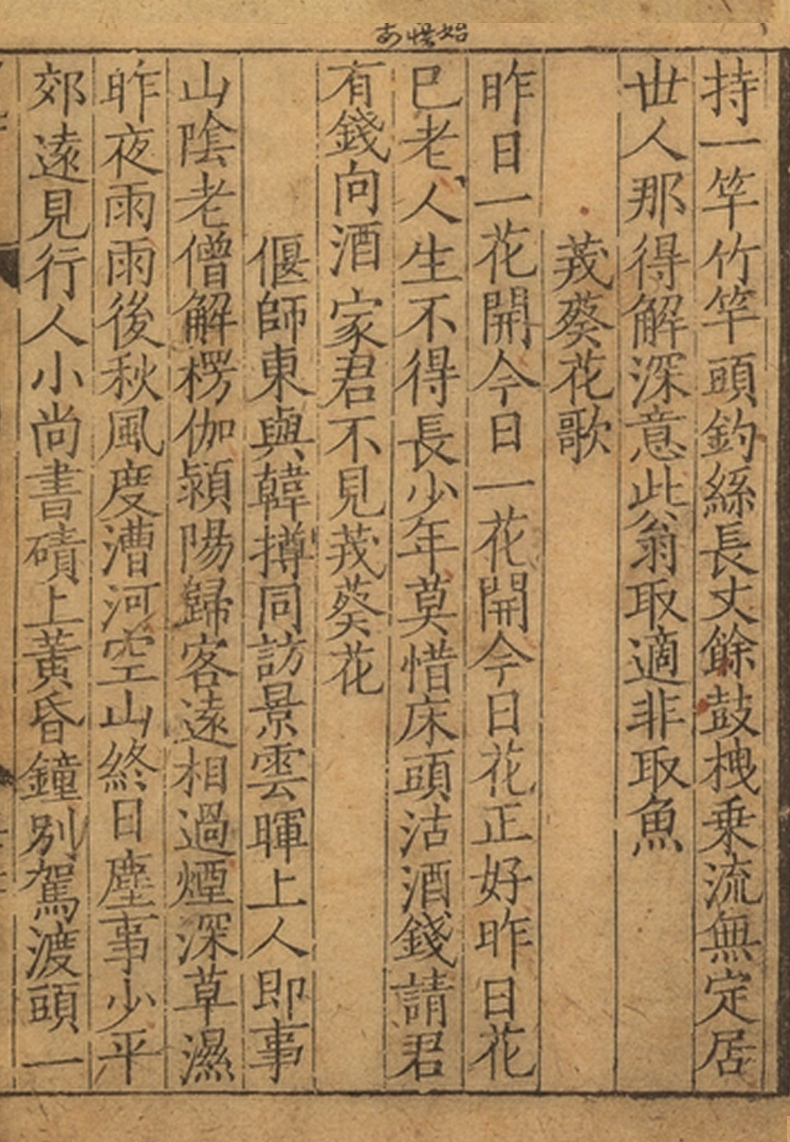 持一竿竹竿頭釣絲長丈餘鼓枻乗流無定居
丗人那得解深意此翁取適非取魚
茙葵花歌
昨日一花開今日一花開今日花正好昨日花
已老人生不得長少年莫惜床頭沽酒錢請君
有錢向酒家君不見茙葵花
偃師東與韓撙同訪景雲暉上人即事
山陰老僧解楞伽潁陽歸客遠相過煙深草濕
昨夜雨雨後秋風度漕河空山終日塵事少平
郊遠見行人小尚書磧上黃昏鐘別駕渡頭一